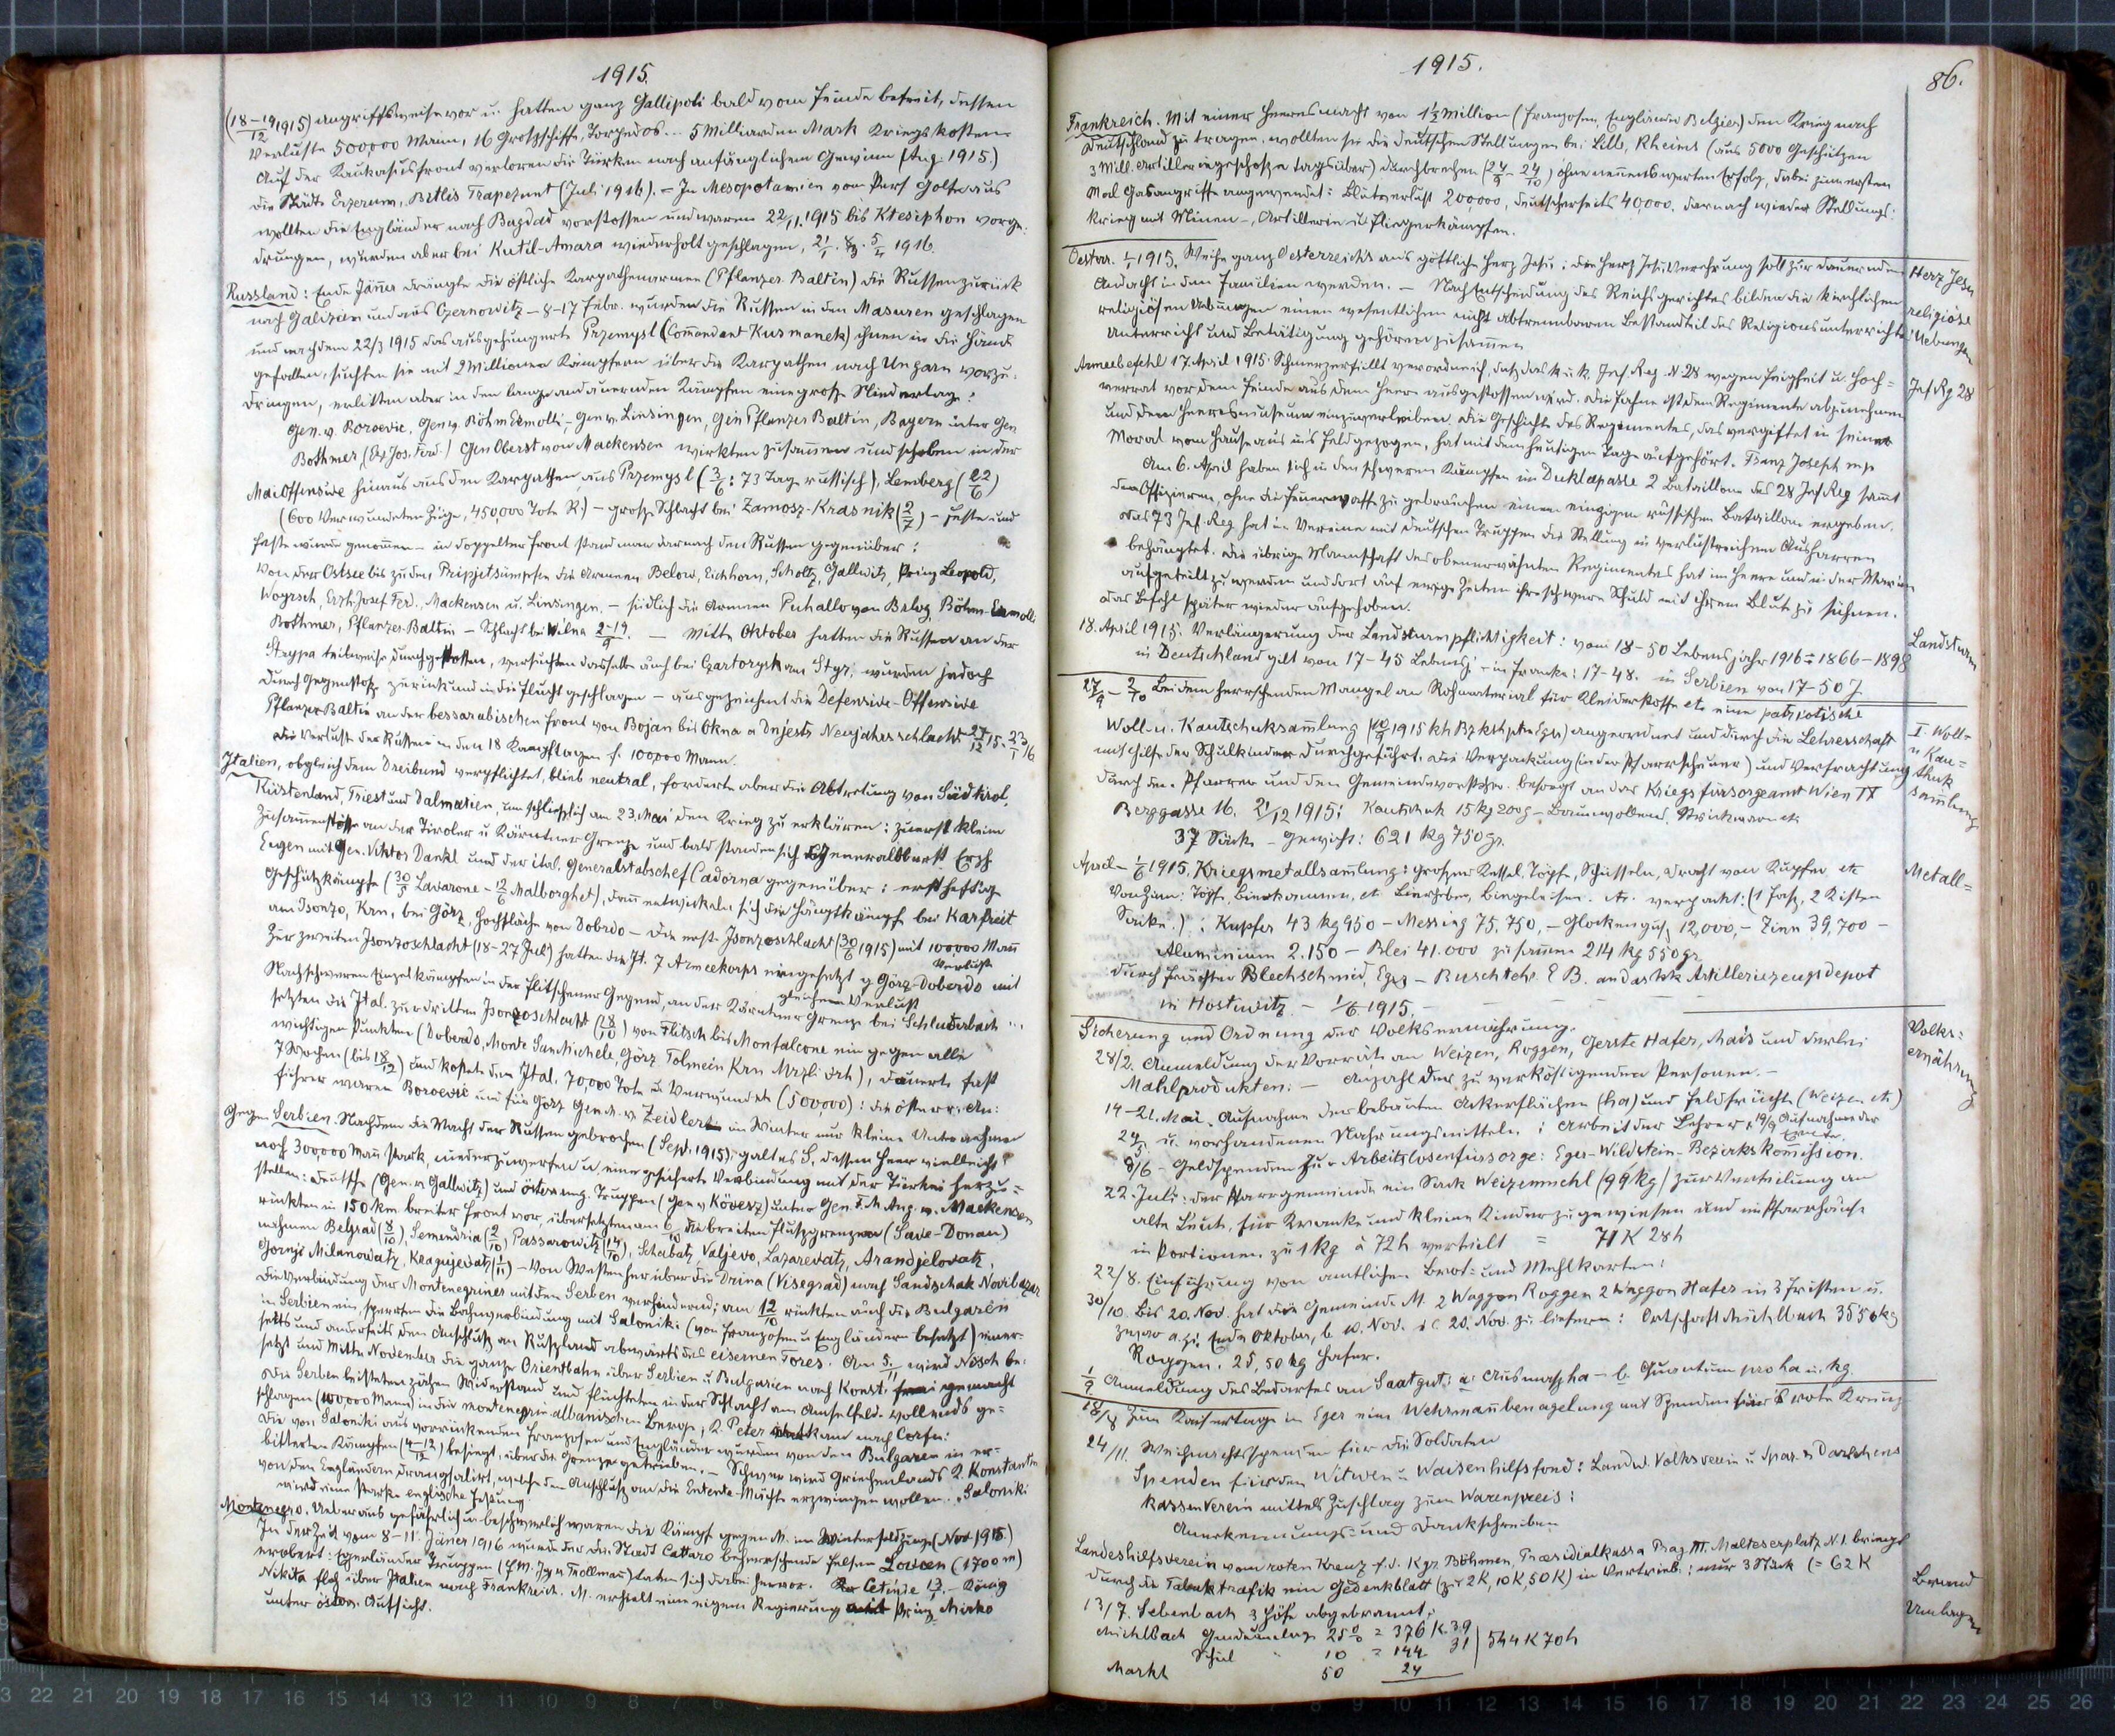 1915.
(18-19/12 1915) angriffsweise vor u. hatten ganz Gallipoli bald vom Feinde befreit, dessen
Verluste 500,000 Mann, 16 Großschiffe, Torpedos... 5 Milliarden Mark Kriegskosten.
Auf der Kaukasusfront verloren die Türken nach anfänglichem Gewinn (Aug. 1915.)
die Städte Erzerum, Bitlis Trapezunt (Juli 1916). - In Mesopotamien vom Pers Golfe aus
wollten die Engländer nach Bagdad vorstossen und waren 22/11. 1915 bis Ktesiphon vorge-
drungen, wurden aber bei Kut-il-Amara wiederholt geschlagen, 1916.
Russland: Ende Jänner drängte die östliche Karpathenarmee (Pflanzer Baltin) die Russen zurück
nach Galizien und aus Czernowitz - 8-17 Febr. wurden die Russen in den Masuren geschlagen
und nachdem 22/3 1915 das ausgehungerte Przemysl (Comandant Kusmanek) ihnen in die Hände
gefallen, suchten sie mit 2 Millionen Kämpfern über die Karpathen nach Ungarn vorzu-
dringen, erlitten aber in den lange andauernden Kämpfen eine große Niederlage:
Gen. v. Boroevic, Gen v. Böhm Ermolli, Gen v. Linsingen, Gen Pflanzer Baltin, Bayern unter Gen
Bothmer, (Erz. Jos. Ferd.) Gen Oberst von Mackensen wirkten zusammen und schoben in der
Mai Offensive hinaus aus den Karpathen aus Przemysl (3/6: 73 Tage russisch), Lemberg (22/6)
(600 Verwundeten Züge, 450,000 Tote R.) - große Schlacht bei Zamosz-Krasnik (2/7) - Feste und
Feste wurde genommen - in doppelter Front stand man darnach den Russen gegenüber:
Von der Ostsee bis zu den Pripjetsümpfen die Armeen Below, Eichhorn, Scholtz, Gallwitz, Prinz Leopold,
Woyrsch, Erzh. Josef Ferd., Mackensen u. Linsingen. - südlich die Armeen Puhallo von Brlog, Böhm-Ermolli
Bothmer, Pflanzer-Baltin - Schlacht bei Wilna 2-19/9. - Mitte Oktober hatten die Russen an der
Strypa teilweise durchgestossen, versuchten dasselbe auch bei Czartorysk am Styr; wurden jedoch
durch Gegenstoß zurück und in die Flucht geschlagen - ausgezeichnet die Defensive-Offensive
Pflanzer Baltin an der bessarabischen Front von Bojan bis Okna a Dnjestr Neujahrsschlacht 27/12 15-23/1 16
die Verluste der Russen in den 18 Kampftagen f. 100,000 Mann.
Italien, obgleich dem Dreibund verpflichtet, blieb neutral, forderte aber die Abtretung von Südtirol,
Küstenland, Triest und Dalmatien, um schließlich am 23. Mai den Krieg zu erklären: zuerst kleine
Zusammenstöße an der Tiroler u Kärntner Grenze und bald standen sich Generaloberst Erzh
Eugen mit Gen. Viktor Dankl und der ital. Generalstabschef Cadorna gegenüber: erst heftige
Geschützkämpfe (30/5 Lavarone - 12/6 Malborghet), dann entwickeln sich die Hauptkämpfe bei Karfreit
am Isonzo, Krn, bei Görz, Hochfläche von Doberdo - Die erste Isonzoschlacht (30/6 1915) mit 100,000 Mann
Verluste
Zur zweiten Isonzoschlacht (18-27 Jul) hatten die It. 7 Armeekorps eingesetzt g Görz-Doberdo mit
gleichem Verlust
Nach schweren Einzelkämpfen in der Flitschener Gegend, an der Kärntner Grenze bei Schluderbach ...
setzten die Ital. zur dritten Isonzoschlacht (18/10) von Flitsch bis Monfalcone ein gegen alle
wichtigen Punkten (Doberdo, Monte San Michele, Görz Tolmein Krn Mrzli vrh), dauerte fast
7 Wochen (bis 18/12) und kostete den Ital. 70,000 Tote u. Verwundete (500000): die österr. An-
führer waren Boroevic und für Görz Gen. v Zeidler im Winter nur kleine Unternehmen
Gegen Serbien. Nachdem die Macht der Russen gebrochen (Sept. 1915), galt es S., dessen Heer vielleicht
noch 300,000 Mann stark, niederzuwerfen u. eine gesicherte Verbindung mit der Türkei herzu-
stellen: deutsche (Gen. v Gallwitz) und österr ung. Truppen (Gen v Kövesz) unter Gen. F. M Aug. v. Mackensen
rückten in 150 km breiter Front vor, übersetzten am 6/10 die breiten Flußgrenzen (Save-Donau)
nahmen Belgrad (8/10), Semendria (2/10) Passarowitz (14/10), Schabatz, Valjevo, Lazarevatz, Arandjelovatz,
Gornji Milanovatz, Kragujevatz (1/11) - Von Westen her über die Drina (Visegrad) nach Sandschak Novibazar
die Verbindung der Montenegriner mit den Serben verhindernd; am 12/10 rückten auch die Bulgaren
in Serbien ein, sperrten die Bahnverbindung mit Saloniki (von Franzosen u Engländern besetzt) einer-
seits und anderseits den Anschluß an Rußland abwärts des eisernen Tores. Am 5/11 wird Nisch be-
setzt und Mitte November die ganze Orientbahn über Serbien u Bulgarien nach Konst. frei gemacht
Die Serben leisteten zähen Widerstand und flüchteten in der Schlacht am Amselfelde vollends ge-
schlagen (100000 Mann) in die montenegrin-albanischen Berge, K. Peter kam nach Corfu:
Die von Saloniki aus vorrückenden Franzosen und Engländer wurden von den Bulgaren in er-
bitterten Kämpfen (4-12/12) besiegt, über die Grenze getrieben. - Schwer wird Griechenlands K. Konstantin
von den Engländern drangsalirt, welche den Anschluß an die Entente-Mächte erzwingen wollen. Saloniki
wird eine starke englische Festung
Montenegro. Ueberaus gefährlich u. beschwerlich waren die Kämpfe gegen M. im Winterfeldzuge (Nov 1915)
In der Zeit vom 8-11. Jäner 1916 wurde der die Stadt Cattaro beherrschende Felsen Lovcen (1700 m)
erobert: Egerländer Truppen (FM. Ig v Trollman) taten sich dabei hervor. Cetinje 13/1. - König
Nikita floh über Italien nach Frankreich. M. erhielt eine eigene Regierung Prinz Mirko
unter österr. Aufsicht.
1915.
86.
Frankreich. Mit einer Heeresmacht von 1½ Million (Franzosen, Engländer Belgier) den Krieg nach
Deutschland zu tragen, wollten sie die deutschen Stellungen bei Lille, Rheims (aus 5000 Geschützen
3 Mill. Artilleriegeschosse tagsüber) durchbrechen (24/9 - 24/10) ohne nennenswerten Erfolg, dabei zum ersten
Mal Gasangriffe angewendet: Blutverlust 200000, deutscherseits 40,000, darnach wieder Stellungs-
krieg mit Minen-, Artillerie u Fliegerkämpfen.
Oesterr. 1/1 1915. Weihe ganz Oesterreichs ans göttliche Herz Jesu: die Herz Jesu Verehrung soll zur dauernden
Herz Jesu
Andacht in den Familien werden. - Nach Entscheidung des Reichsgerichtes bilden die kirchlichen
religiösen Uebungen einen wesentlichen nicht abtrennbaren Bestandteil des Religionsunterrichts
religiöse
Uebungen
Unterricht und Betätigung gehören zusammen
Armeebefehl 17. April 1915: Schmerzerfüllt verordne ich, daß das k. u. k. Inf. Reg. N. 28 wegen Feigheit u. Hoch-
Inf Rg 28
verrat vor dem Feinde aus dem Heere ausgestossen wird. Die Fahne ist dem Regimente abzunehmen
und dem Heeresmuseum einzuverleiben. Die Geschichte des Regimentes, das vergiftet in seiner
Moral vom Hause aus ins Feld gezogen, hat mit dem heutigen Tage aufgehört. Franz Joseph mp
Am 6. April haben sich in den schweren Kämpfen im Duklapasse 2 Bataillone des 28 Inf. Reg samt
den Offizieren, ohne die Feuerwaffe zu gebrauchen einem einzigen russischen Bataillon ergeben.
Das 73 Inf. Reg hat im Vereine mit deutschen Truppen die Stellung in verlustreichem Ausharren
behauptet. Die übrige Mannschaft des obenerwähnten Regimentes hat im Heere und in der Marine
aufgeteilt zu werden und dort auf ewige Zeiten ihre schwere Schuld mit ihrem Blute zu sühnen.
Das Befehl später wieder aufgehoben.
18. April 1915. Verlängerung der Landsturmpflichtigkeit: vom 18-50 Lebensjahr 1916 = 1866-1898
Landsturm
in Deutschland gilt von 17-45 Lebensj - in Frankr: 17-48. in Serbien von 17-50 J.
27/9 - 2/10 Bei dem herrschenden Mangel an Rohmaterial für Kleiderstoffe etc eine patriotische
Woll- u. Kautschuksammlung angeordnet und durch die Lehrerschaft
I. Woll-
u Kau-
tschuk
sammlung
mit Hilfe der Schulkinder durchgeführt. Die Verpackung (in der Pfarrscheuer) und Verfrachtung
durch den Pfarrer und den Gemeindevorsteher besorgt an das Kriegsfürsorgeamt Wien IX
Berggasse 16. 21/12 1915: Kautschuk 15 kg 200 g - Baumwollend. Strickwaren etc
37 Säcke - Gewicht: 621 kg 750 gr.
April - 1/6 1915. Kriegsmetallsammlung: große Kessel, Töpfe, Schüsseln, Draht von Kupfer etc
Metall-
von Zinn: Töpfe, Bierkannen, etc. verpackt: (1 Faß, 2 Kisten
Säcke.): Kupfer 43 kg 950 - Messing 75,750, - Glockenguß 12,000, - Zinn 39,700 -
Aluminium 2.150 - Blei 41.000 zusammen 214 kg 550 gr
durch Frächter Blechschmid, Eger - Buschtehr. E B. an das k k Artilleriezeugsdepot
in Hostiwitz - 1/6 1915.
Sicherung und Ordnung der Volksernährung.
Volks-
ernährung
28/2. Anmeldung der Vorräte an Weizen, Roggen, Gerste Hafer, Mais und derlei
Mahlprodukten. - Anzahl der zu verköstigenden Personen. -
14-21. Mai. Aufnahme der bebauten Ackerflächen (ha) und Feldfrüchte (Weizen etc)
24/5 u. vorhandenen Nahrungsmitteln; Arbeit der Lehrer, 19/9 Aufnahme der
Ernte.
8/6 - Geldspenden zur Arbeitslosenfürsorge: Eger-Wildstein-Bezirkskommission.
22. Juli: der Pfarrgemeinde ein Sack Weizenmehl (99 kg) zur Verteilung an
alte Leute, für Kranke und kleine Kinder zugewiesen und im Pfarrhause
in Portionen zu 1 kg à 72 h verteilt = 71 K 28 h
22/8. Einführung von amtlichen Brot- und Mehlkarten:
30/10. Bis 20. Nov. hat die Gemeinde M. 2 Waggon Roggen 2 Waggon Hafer in 3 Fristen u.
zwar a. zu Ende Oktober, b. 10. Nov. c 20. Nov. zu liefern: Ortschaft Mühlbach 3556 kg
Roggen. 25,50 kg Hafer.
1/9 Anmeldung des Bedarfes an Saatgut: a: Ausmaß ha - b. Quantum pro ha u. kg.
18/8 Zum Kaisertage in Eger eine Wehrmannbenagelung mit Spenden für's rote Kreuz
24/11. Weihnachtsspenden für die Soldaten
Spenden für den Witwen u Waisenhilfsfond: Landw. Volksverein u Spar- u Darlehens
kassenverein mittels Zuschlag zum Warenpreis:
Anerkennungs- und Dankschreiben
Landeshilfsverein vom roten Kreuz f. d. Kgr Böhmen, Præsidialkassa Prag III. Malteserplatz N. 1. bringt
durch die Tabaktrafik ein Gedenkblatt (zu 2K, 10K, 50K) in Vertrieb: nur 3 Stück (= 62 K
13/7. Sebenbach 3 Höfe abgebrannt;
Brand
Mühlbach Gmdeumlage 25% = 376 K. 39
Umlagen
Schul " 10 = 144 31 | 544 K 70 h
Markt 50 24